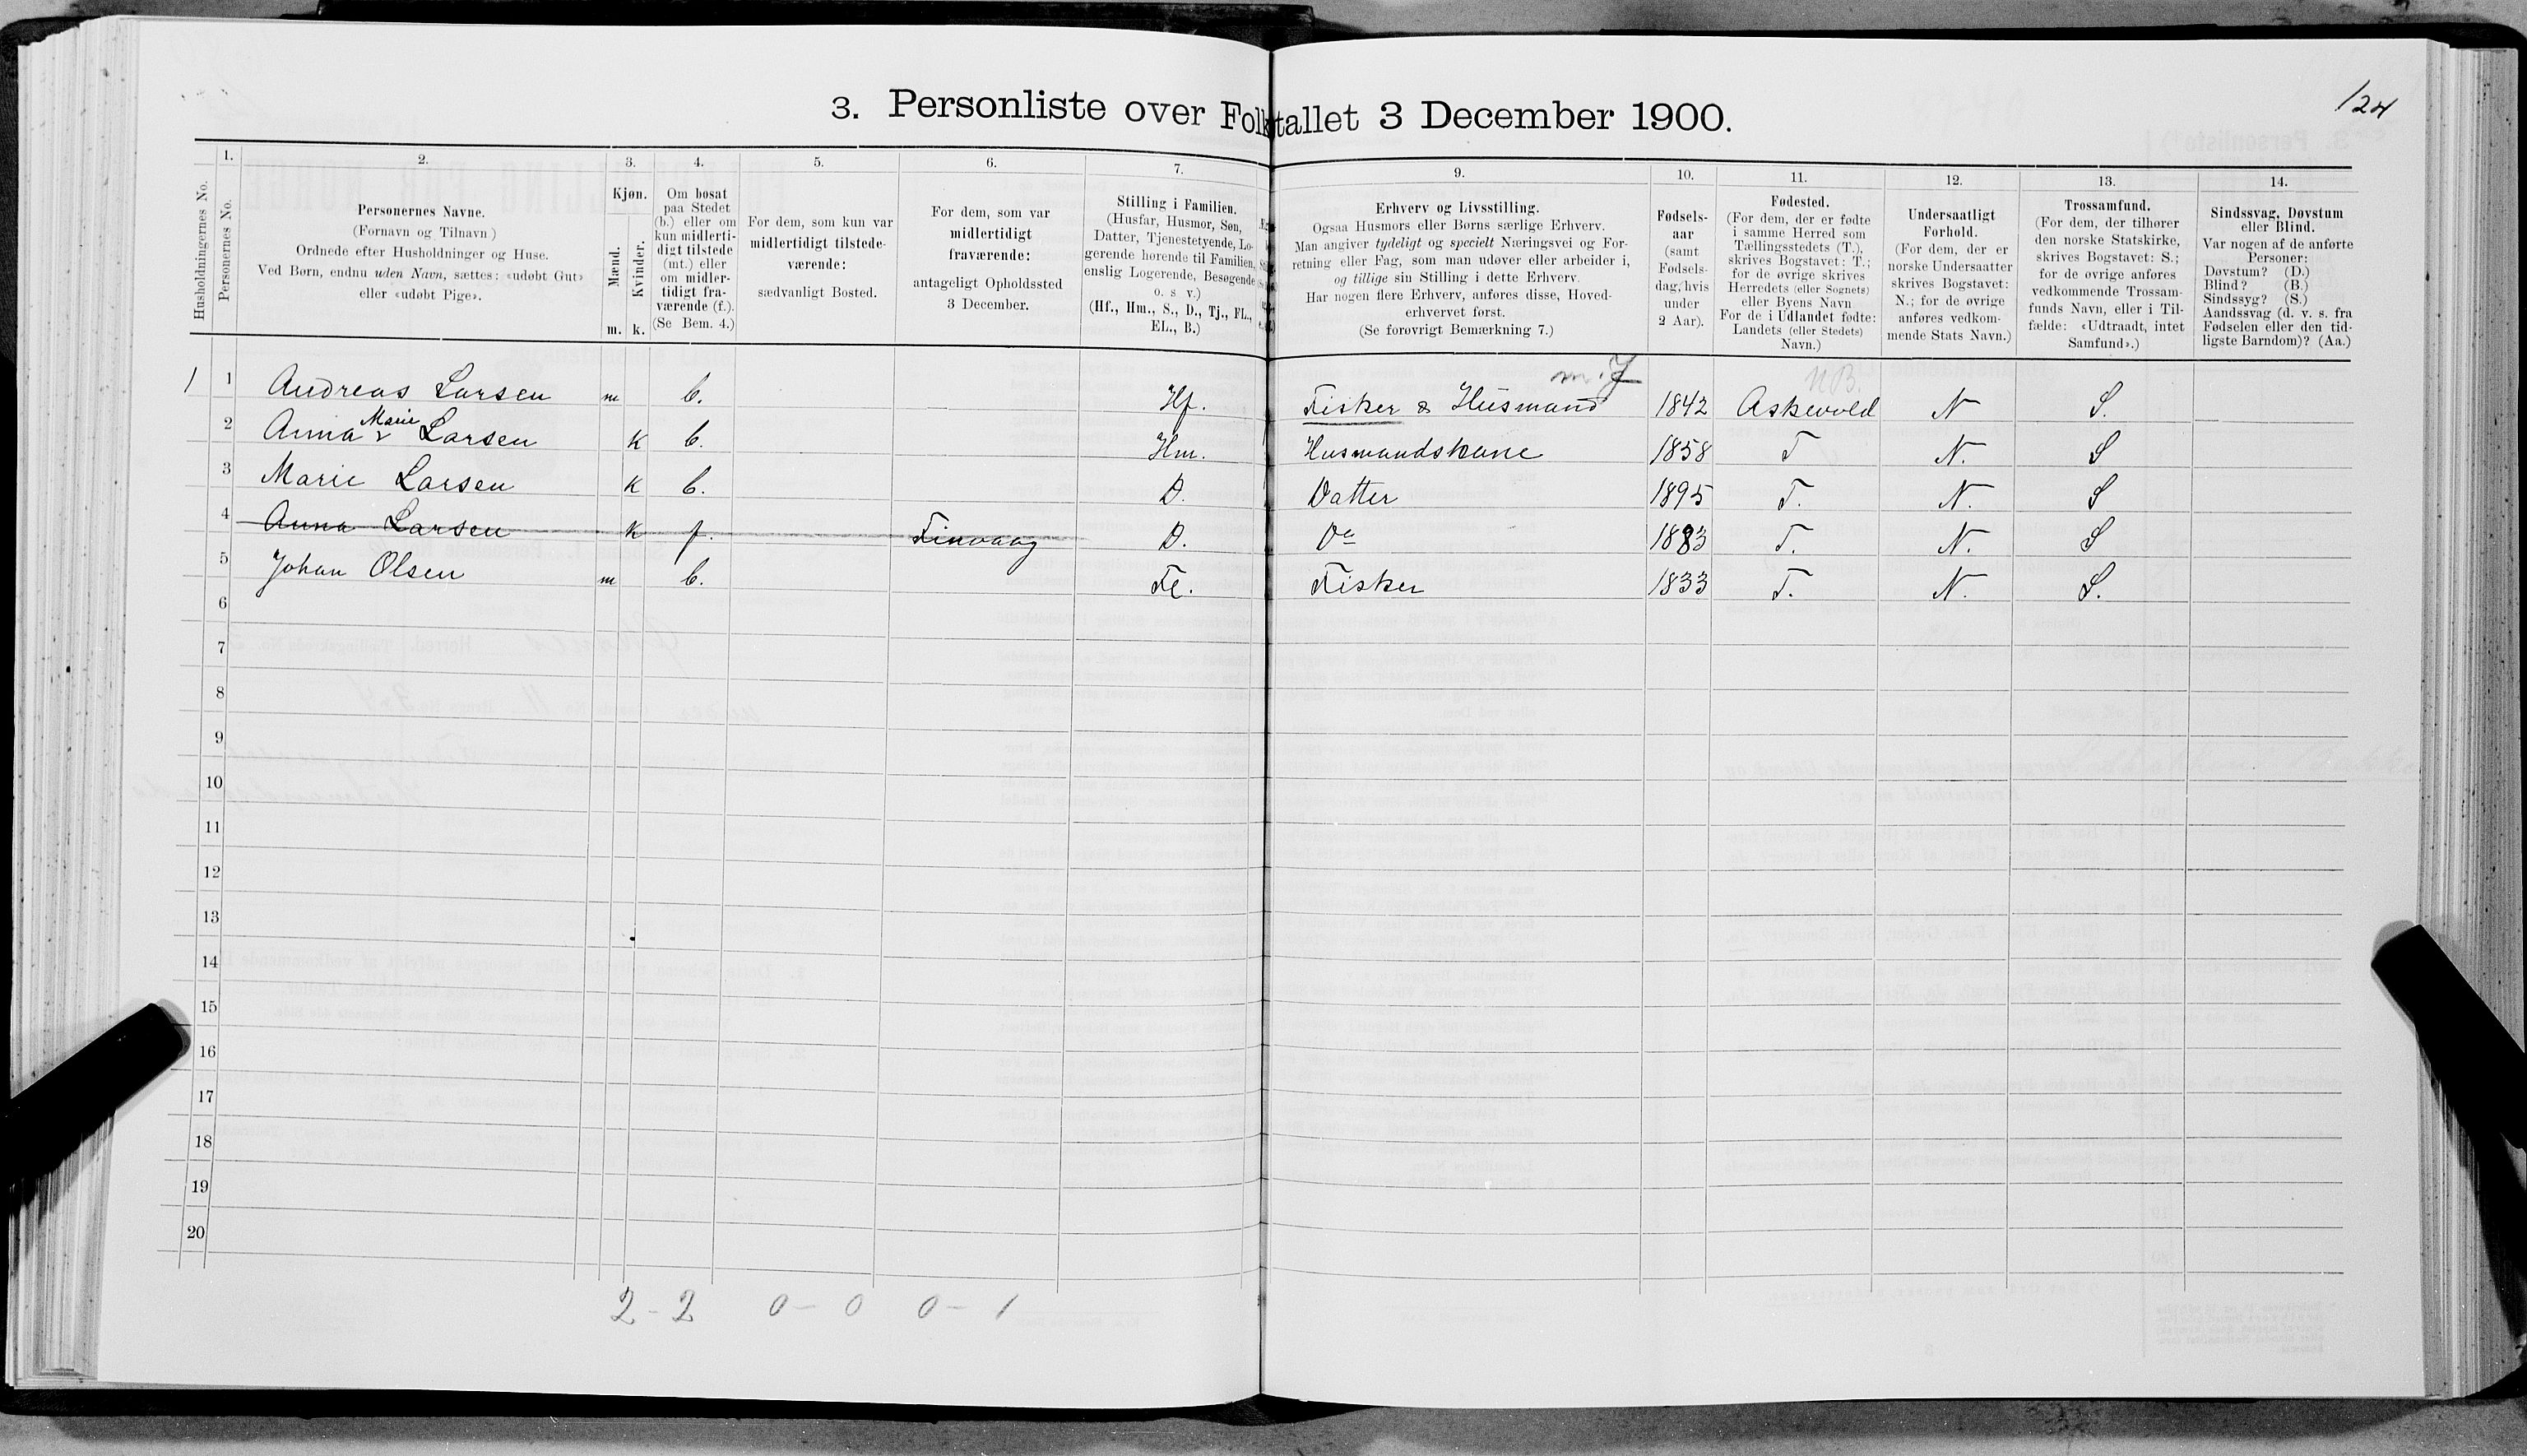 124
3. Personliste over Folketallet 3 December 1900.
Husholdningernes No.
1.
Personernes No.
2.
Personernes Navne.
(Fornavn og Tilnavn)
Ordnede efter Husholdninger og Huse.
Ved Børn, endnu uden Navn, sættes: «udøbt Gut»
eller «udøbt Pige».
3.
Kjøn.
Mænd.
Kvinder.
m. k.
4.
Om bosat
paa Stedet
(b.) eller om
kun midlerti-
digt tilstede
(mt.) eller
om midler-
tidigt fra-
værende (f.).
(Se Bem. 4.)
5.
For dem, som kun var
midlertidigt tilstede-
værende:
sædvanligt Bosted.
6.
For dem, som var
midlertidigt
fraværende:
antageligt Opholdssted
3 December.
7.
Stilling i Familien.
(Husfar, Husmor, Søn,
Datter, Tjenestetyende, Lo-
gerende hørende til Familien,
enslig Logerende, Besøgende
o. s v.)
(Hf., Hm., S., D., Tj., FL.,
EL., B.)
9.
Erhverv og Livsstilling.
Ogsaa Husmors eller Børns særlige Erhverv.
Man angiver tydeligt og specielt Næringsvei og For-
retning eller Fag, som man udøver eller arbeider i,
og tillige sin Stilling i dette Erhverv.
Har nogen flere Erhverv, anføres disse, Hoved-
erhvervet først.
(Se forøvrigt Bemærkning 7.)
10.
Fødsels-
aar
(samt
Fødsels-
dag, hvis
under
2 Aar).
11.
Fødested.
(For dem, der er fødte
i samme Herred som
Tællingsstedets (T.),
skrives Bogstavet: T.;
for de øvrige skrives
Herredets (eller Sognets)
eller Byens Navn
For de i Udlandet fødte:
Landets (eller Stedets)
Navn.)
12.
Undersaatligt
Forhold.
(For dem, der er
norske Undersaatter
skrives Bogstavet:
N.; for de øvrige
anføres vedkom-
mende Stats Navn.)
13.
Trossamfund.
(For dem, der tilhører
den norske Statskirke,
skrives Bogstavet: S.;
for de øvrige anføres
vedkommende Trossam-
funds Navn, eller i Til-
fælde: «Udtraadt, intet
Samfund».)
14.
Sindssvag, Døvstum
eller Blind.
Var nogen af de anførte
Personer:
Døvstum? (D.)
Blind? (B.)
Sindssyg? (S.)
Aandssvag (d. v. s. fra
Fødselen eller den tid-
ligste Barndom)? (Aa.)
1 1 Andreas Larsen m b. Hf. Fisker & Husmand 1842 Askevold N S.
2 Anna Marie Larsen k b. Hm. Husmandskone 1858 T N. S
3 Marie Larsen k b. D. Datter 1895 T. N. S
4 Anna Larsen k f. Finvaag D. Do 1883 T. N. S
5 Johan Olsen m b. Fl. Fisker 1833 T. N. S.
6
7
8
9
10
11
12
13
14
15
16
17
18
19
20
2 - 2 0 - 0 0 - 1